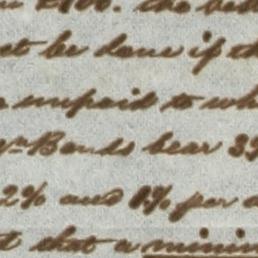 the
be done if th
unpaid to wh
Bonds bear 3%
2% and per
that a minim